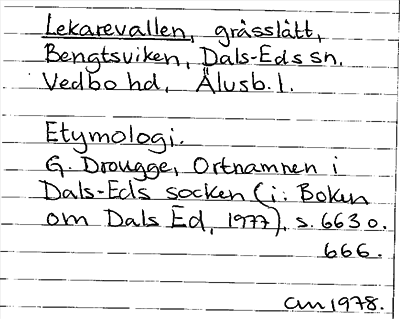 Lekarevallen, grässlått,
Bengtsviken, Dals-Eds sn.
Vedbo hd, Älvsb. l.
Etymologi.
G. Drougge, Ortnamnen i
Dals-Eds socken (i: Boken
om Dals Ed, 1977), s. 663 o.
666.
am 1978.